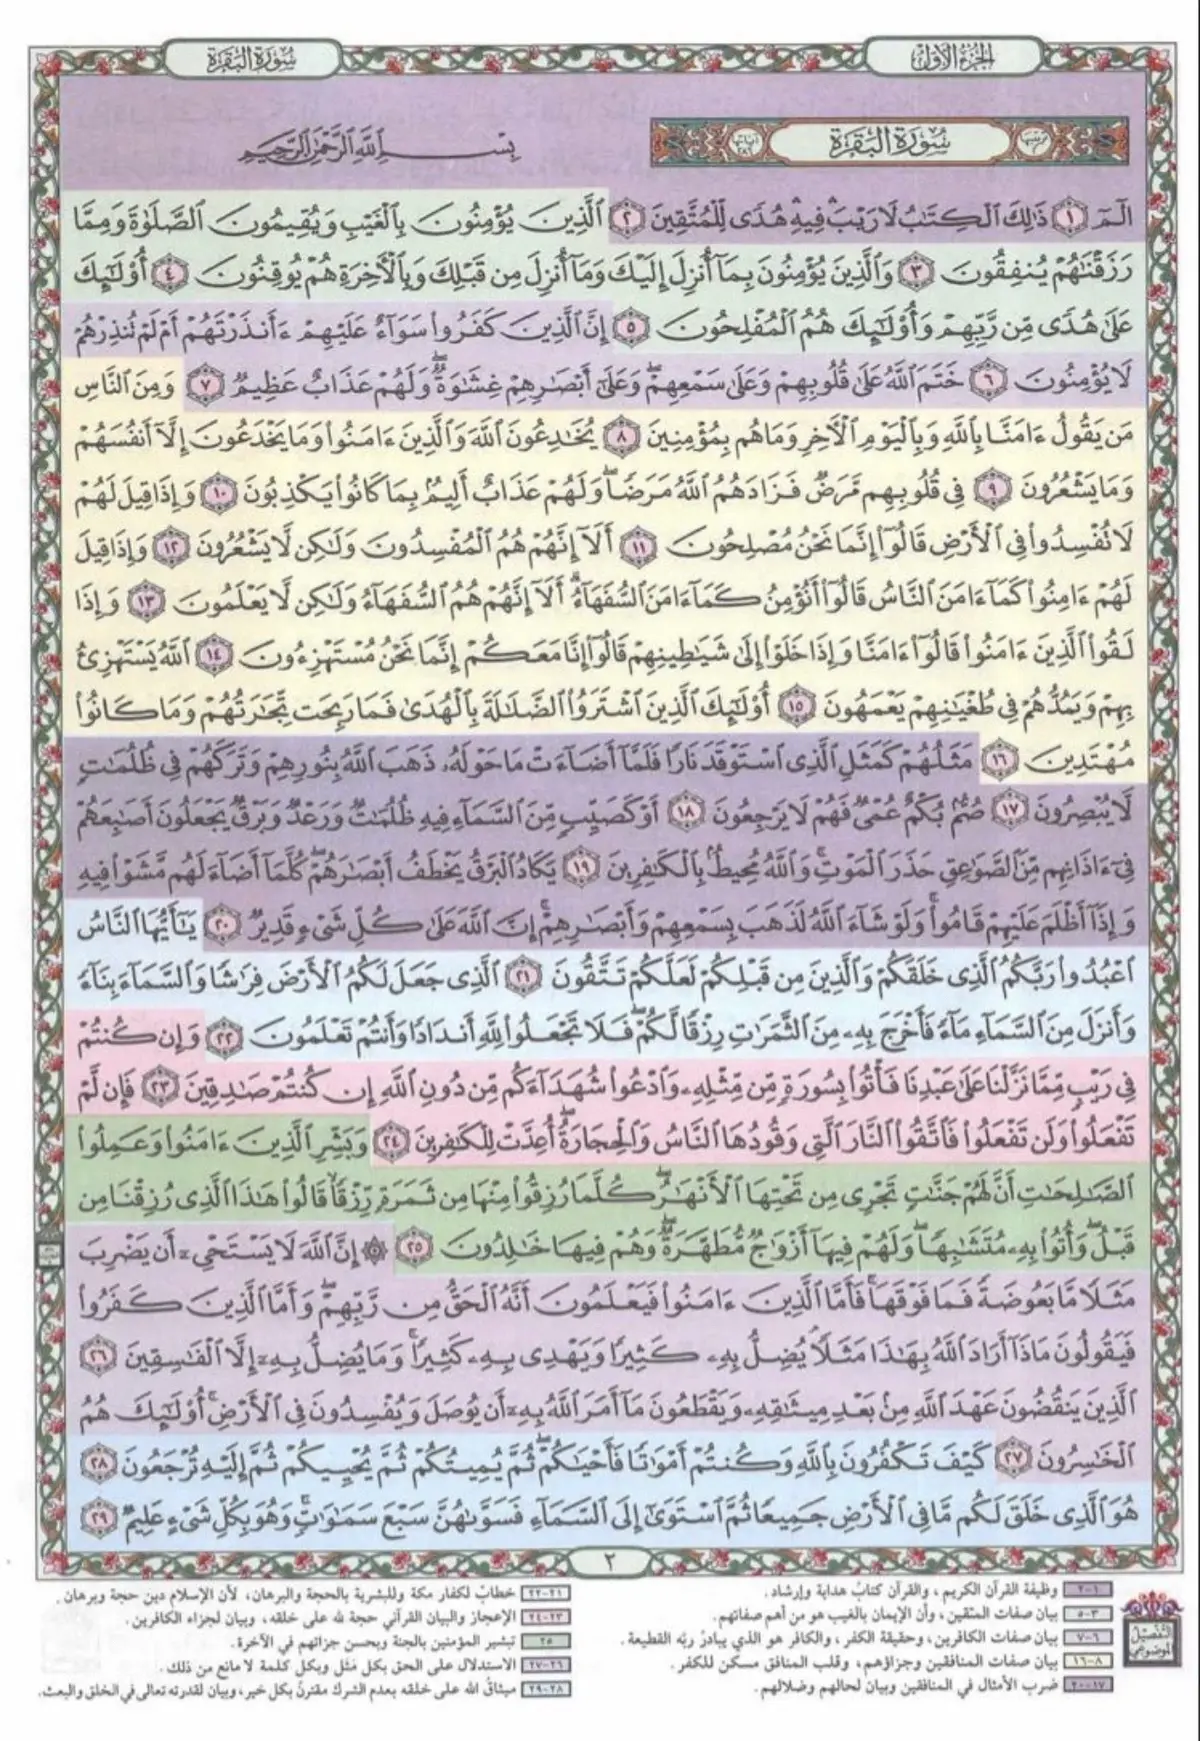 الجزء الأول
سورة البقرة
سورة البقرة
بِسْمِ ٱللَّهِ ٱلرَّحْمَٰنِ ٱلرَّحِيمِ
الٓمٓ ١ ذَٰلِكَ ٱلْكِتَٰبُ لَا رَيْبَ ۛ فِيهِ ۛ هُدًى لِّلْمُتَّقِينَ ٢ ٱلَّذِينَ يُؤْمِنُونَ بِٱلْغَيْبِ وَيُقِيمُونَ ٱلصَّلَوٰةَ وَمِمَّا
رَزَقْنَٰهُمْ يُنفِقُونَ ٣ وَٱلَّذِينَ يُؤْمِنُونَ بِمَآ أُنزِلَ إِلَيْكَ وَمَآ أُنزِلَ مِن قَبْلِكَ وَبِٱلْءَاخِرَةِ هُمْ يُوقِنُونَ ٤ أُو۟لَٰٓئِكَ
عَلَىٰ هُدًى مِّن رَّبِّهِمْ وَأُو۟لَٰٓئِكَ هُمُ ٱلْمُفْلِحُونَ ٥ إِنَّ ٱلَّذِينَ كَفَرُوا۟ سَوَآءٌ عَلَيْهِمْ ءَأَنذَرْتَهُمْ أَمْ لَمْ تُنذِرْهُمْ
لَا يُؤْمِنُونَ ٦ خَتَمَ ٱللَّهُ عَلَىٰ قُلُوبِهِمْ وَعَلَىٰ سَمْعِهِمْ ۖ وَعَلَىٰٓ أَبْصَٰرِهِمْ غِشَٰوَةٌ ۖ وَلَهُمْ عَذَابٌ عَظِيمٌ ٧ وَمِنَ ٱلنَّاسِ
مَن يَقُولُ ءَامَنَّا بِٱللَّهِ وَبِٱلْيَوْمِ ٱلْءَاخِرِ وَمَا هُم بِمُؤْمِنِينَ ٨ يُخَٰدِعُونَ ٱللَّهَ وَٱلَّذِينَ ءَامَنُوا۟ وَمَا يَخْدَعُونَ إِلَّآ أَنفُسَهُمْ
وَمَا يَشْعُرُونَ ٩ فِى قُلُوبِهِم مَّرَضٌ فَزَادَهُمُ ٱللَّهُ مَرَضًا ۖ وَلَهُمْ عَذَابٌ أَلِيمٌۢ بِمَا كَانُوا۟ يَكْذِبُونَ ١٠ وَإِذَا قِيلَ لَهُمْ
لَا تُفْسِدُوا۟ فِى ٱلْأَرْضِ قَالُوٓا۟ إِنَّمَا نَحْنُ مُصْلِحُونَ ١١ أَلَآ إِنَّهُمْ هُمُ ٱلْمُفْسِدُونَ وَلَٰكِن لَّا يَشْعُرُونَ ١٢ وَإِذَا قِيلَ
لَهُمْ ءَامِنُوا۟ كَمَآ ءَامَنَ ٱلنَّاسُ قَالُوٓا۟ أَنُؤْمِنُ كَمَآ ءَامَنَ ٱلسُّفَهَآءُ ۗ أَلَآ إِنَّهُمْ هُمُ ٱلسُّفَهَآءُ وَلَٰكِن لَّا يَعْلَمُونَ ١٣ وَإِذَا
لَقُوا۟ ٱلَّذِينَ ءَامَنُوا۟ قَالُوٓا۟ ءَامَنَّا وَإِذَا خَلَوْا۟ إِلَىٰ شَيَٰطِينِهِمْ قَالُوٓا۟ إِنَّا مَعَكُمْ إِنَّمَا نَحْنُ مُسْتَهْزِءُونَ ١٤ ٱللَّهُ يَسْتَهْزِئُ
بِهِمْ وَيَمُدُّهُمْ فِى طُغْيَٰنِهِمْ يَعْمَهُونَ ١٥ أُو۟لَٰٓئِكَ ٱلَّذِينَ ٱشْتَرَوُا۟ ٱلضَّلَٰلَةَ بِٱلْهُدَىٰ فَمَا رَبِحَت تِّجَٰرَتُهُمْ وَمَا كَانُوا۟
مُهْتَدِينَ ١٦ مَثَلُهُمْ كَمَثَلِ ٱلَّذِى ٱسْتَوْقَدَ نَارًا فَلَمَّآ أَضَآءَتْ مَا حَوْلَهُۥ ذَهَبَ ٱللَّهُ بِنُورِهِمْ وَتَرَكَهُمْ فِى ظُلُمَٰتٍ
لَّا يُبْصِرُونَ ١٧ صُمٌّۢ بُكْمٌ عُمْىٌ فَهُمْ لَا يَرْجِعُونَ ١٨ أَوْ كَصَيِّبٍ مِّنَ ٱلسَّمَآءِ فِيهِ ظُلُمَٰتٌ وَرَعْدٌ وَبَرْقٌ يَجْعَلُونَ أَصَٰبِعَهُمْ
فِىٓ ءَاذَانِهِم مِّنَ ٱلصَّوَٰعِقِ حَذَرَ ٱلْمَوْتِ ۚ وَٱللَّهُ مُحِيطٌۢ بِٱلْكَٰفِرِينَ ١٩ يَكَادُ ٱلْبَرْقُ يَخْطَفُ أَبْصَٰرَهُمْ ۖ كُلَّمَآ أَضَآءَ لَهُم مَّشَوْا۟ فِيهِ
وَإِذَآ أَظْلَمَ عَلَيْهِمْ قَامُوا۟ ۚ وَلَوْ شَآءَ ٱللَّهُ لَذَهَبَ بِسَمْعِهِمْ وَأَبْصَٰرِهِمْ ۚ إِنَّ ٱللَّهَ عَلَىٰ كُلِّ شَىْءٍ قَدِيرٌ ٢٠ يَٰٓأَيُّهَا ٱلنَّاسُ
ٱعْبُدُوا۟ رَبَّكُمُ ٱلَّذِى خَلَقَكُمْ وَٱلَّذِينَ مِن قَبْلِكُمْ لَعَلَّكُمْ تَتَّقُونَ ٢١ ٱلَّذِى جَعَلَ لَكُمُ ٱلْأَرْضَ فِرَٰشًا وَٱلسَّمَآءَ بِنَآءً
وَأَنزَلَ مِنَ ٱلسَّمَآءِ مَآءً فَأَخْرَجَ بِهِۦ مِنَ ٱلثَّمَرَٰتِ رِزْقًا لَّكُمْ ۖ فَلَا تَجْعَلُوا۟ لِلَّهِ أَندَادًا وَأَنتُمْ تَعْلَمُونَ ٢٢ وَإِن كُنتُمْ
فِى رَيْبٍ مِّمَّا نَزَّلْنَا عَلَىٰ عَبْدِنَا فَأْتُوا۟ بِسُورَةٍ مِّن مِّثْلِهِۦ وَٱدْعُوا۟ شُهَدَآءَكُم مِّن دُونِ ٱللَّهِ إِن كُنتُمْ صَٰدِقِينَ ٢٣ فَإِن لَّمْ
تَفْعَلُوا۟ وَلَن تَفْعَلُوا۟ فَٱتَّقُوا۟ ٱلنَّارَ ٱلَّتِى وَقُودُهَا ٱلنَّاسُ وَٱلْحِجَارَةُ ۖ أُعِدَّتْ لِلْكَٰفِرِينَ ٢٤ وَبَشِّرِ ٱلَّذِينَ ءَامَنُوا۟ وَعَمِلُوا۟
ٱلصَّٰلِحَٰتِ أَنَّ لَهُمْ جَنَّٰتٍ تَجْرِى مِن تَحْتِهَا ٱلْأَنْهَٰرُ ۖ كُلَّمَا رُزِقُوا۟ مِنْهَا مِن ثَمَرَةٍ رِّزْقًا ۙ قَالُوا۟ هَٰذَا ٱلَّذِى رُزِقْنَا مِن
قَبْلُ ۖ وَأُتُوا۟ بِهِۦ مُتَشَٰبِهًا ۖ وَلَهُمْ فِيهَآ أَزْوَٰجٌ مُّطَهَّرَةٌ ۖ وَهُمْ فِيهَا خَٰلِدُونَ ٢٥ ۞ إِنَّ ٱللَّهَ لَا يَسْتَحْىِۦٓ أَن يَضْرِبَ
مَثَلًا مَّا بَعُوضَةً فَمَا فَوْقَهَا ۚ فَأَمَّا ٱلَّذِينَ ءَامَنُوا۟ فَيَعْلَمُونَ أَنَّهُ ٱلْحَقُّ مِن رَّبِّهِمْ ۖ وَأَمَّا ٱلَّذِينَ كَفَرُوا۟
فَيَقُولُونَ مَاذَآ أَرَادَ ٱللَّهُ بِهَٰذَا مَثَلًا ۘ يُضِلُّ بِهِۦ كَثِيرًا وَيَهْدِى بِهِۦ كَثِيرًا ۚ وَمَا يُضِلُّ بِهِۦٓ إِلَّا ٱلْفَٰسِقِينَ ٢٦
ٱلَّذِينَ يَنقُضُونَ عَهْدَ ٱللَّهِ مِنۢ بَعْدِ مِيثَٰقِهِۦ وَيَقْطَعُونَ مَآ أَمَرَ ٱللَّهُ بِهِۦٓ أَن يُوصَلَ وَيُفْسِدُونَ فِى ٱلْأَرْضِ ۚ أُو۟لَٰٓئِكَ هُمُ
ٱلْخَٰسِرُونَ ٢٧ كَيْفَ تَكْفُرُونَ بِٱللَّهِ وَكُنتُمْ أَمْوَٰتًا فَأَحْيَٰكُمْ ۖ ثُمَّ يُمِيتُكُمْ ثُمَّ يُحْيِيكُمْ ثُمَّ إِلَيْهِ تُرْجَعُونَ ٢٨
هُوَ ٱلَّذِى خَلَقَ لَكُم مَّا فِى ٱلْأَرْضِ جَمِيعًا ثُمَّ ٱسْتَوَىٰٓ إِلَى ٱلسَّمَآءِ فَسَوَّىٰهُنَّ سَبْعَ سَمَٰوَٰتٍ ۚ وَهُوَ بِكُلِّ شَىْءٍ عَلِيمٌ ٢٩
٢
التفصيل الموضوعي
١-٢ وظيفة القرآن الكريم، والقرآن كتابُ هداية وإرشاد.
٣-٥ بيان صفات المتّقين، وأن الإيمان بالغيب هو من أهم صفاتهم.
٦-٧ بيان صفات الكافرين، وحقيقة الكفر، والكافر هو الذي يبادرُ ربّه القطيعة.
٨-١٦ بيان صفات المنافقين وجزاؤهم، وقلب المنافق مسكن للكفر.
١٧-٢٠ ضرب الأمثال في المنافقين وبيان لحالهم وضلالهم.
٢١-٢٢ خطابٌ لكفار مكة وللبشرية بالحجة والبرهان، لأن الإسلام دين حجة وبرهان.
٢٣-٢٤ الإعجاز والبيان القرآني حجة لله على خلقه، وبيان لجزاء الكافرين.
٢٥ تبشير المؤمنين بالجنة وبحسن جزائهم في الآخرة.
٢٦-٢٧ الاستدلال على الحق بكل مَثل وبكل كلمة لا مانع من ذلك.
٢٨-٢٩ ميثاقُ الله على خلقه بعدم الشرك مقترنٌ بكل خير، وبيان لقدرته تعالى في الخلق والبعث.